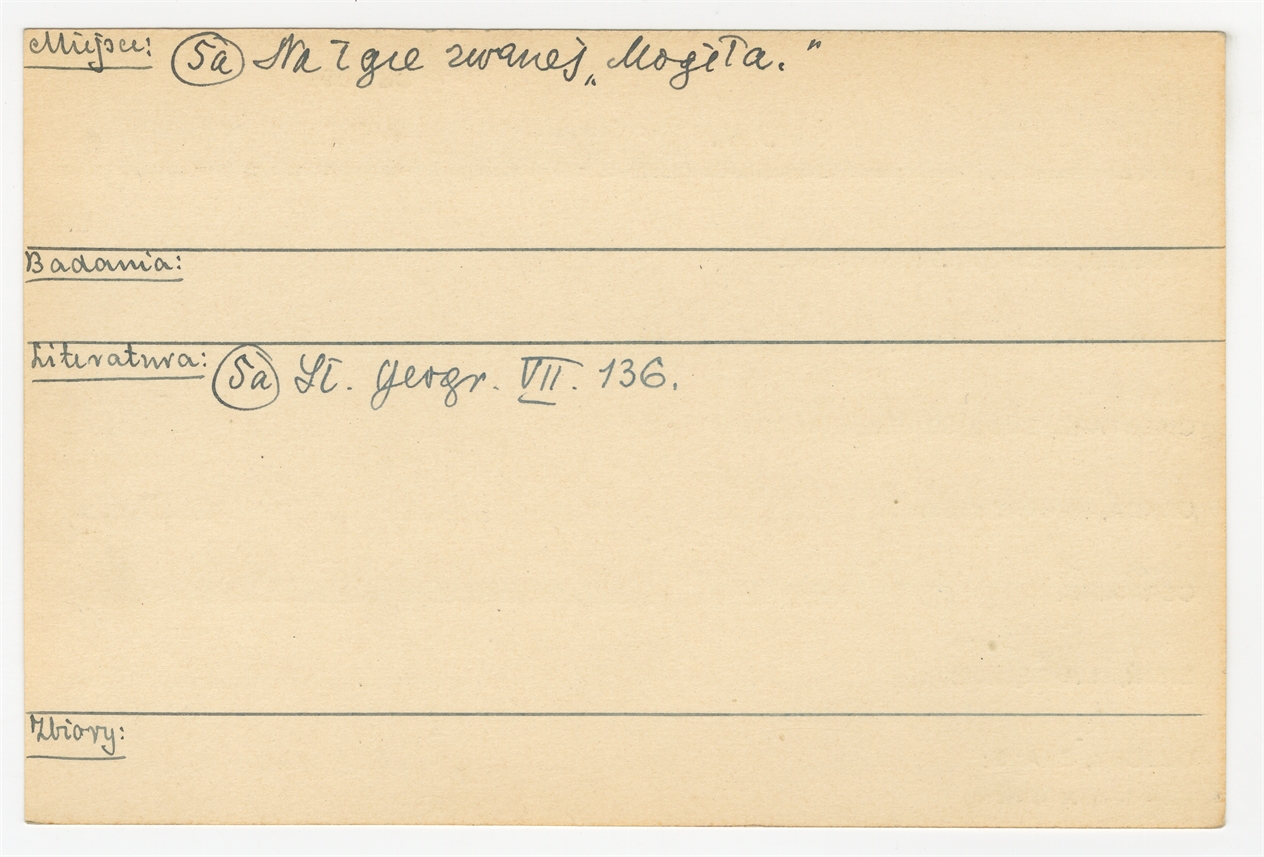 Miejsce: 5a Na łące zwanej „Mogiła.”
Badania:
Literatura: 5a Sł. Geogr. VII. 136.
Zbiory: